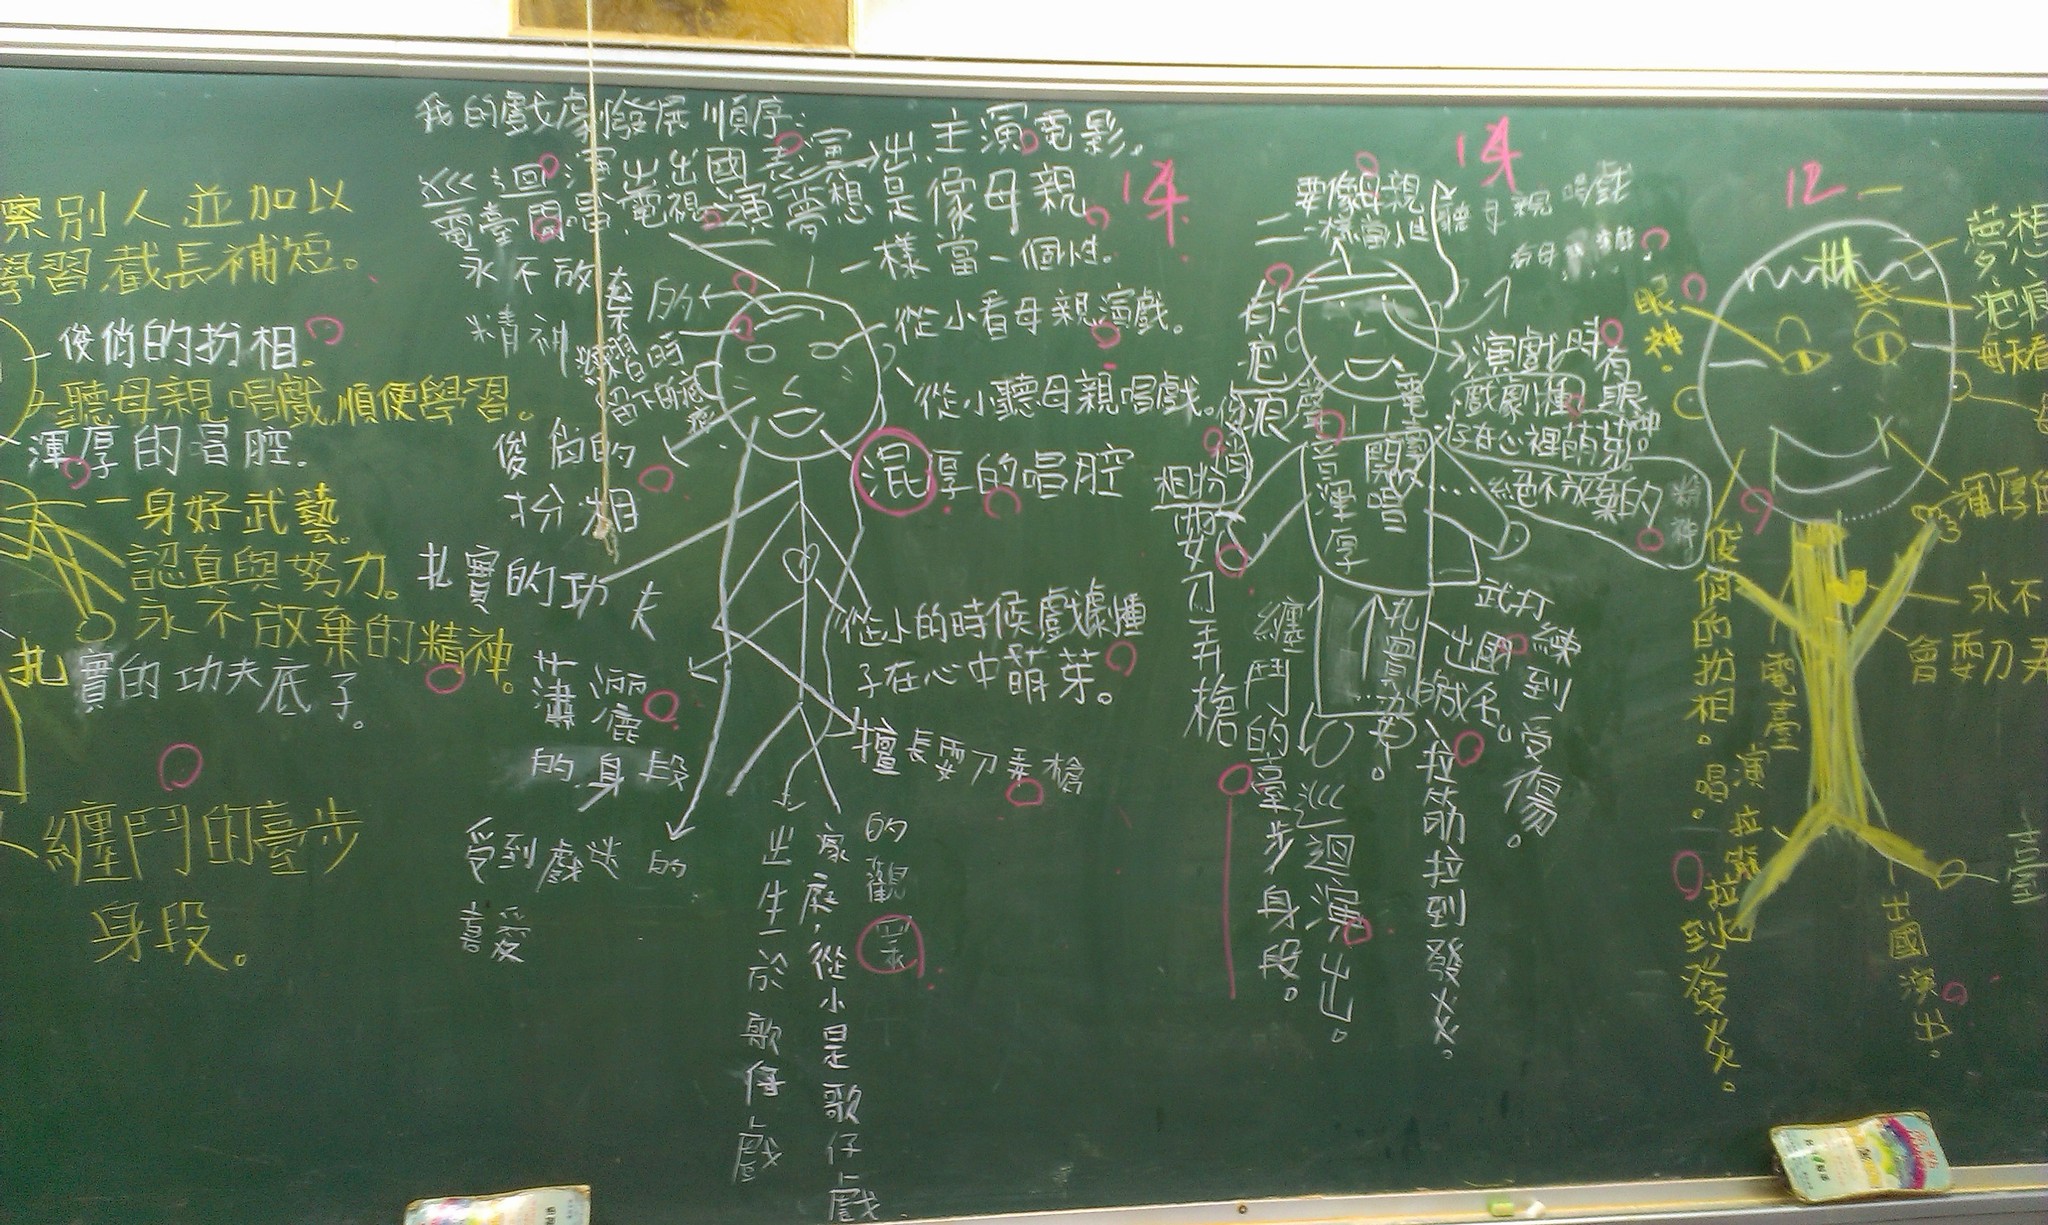 察別人並加以
學習,截長補短。
俊俏的扮相。
聽母親唱戲,順便學習。
渾厚的唱腔。
一身好武藝。
認真與努力。
永不放棄的精神。
扎實的功夫底子。
纏鬥的臺步
身段。
我的戲劇發展順序:
巡迴演出出國表演→出主演電影。
電臺開唱電視演
夢想是像母親
一樣當一個性。
永不放棄的
精神
練習時
留下的疤痕
俊俏的
扮相
扎實的功夫
瀟灑
的身段
受到戲迷的
喜愛
從小看母親演戲。
從小聽母親唱戲。
混厚的唱腔
從小的時候戲劇種
子在心中萌芽。
擅長耍刀弄槍
的觀眾
家庭,從小是歌仔戲
出生於歌仔戲
14
14
12
二
要像母親
一樣當小性
聽母親唱戲
看母親演戲
有疤痕
聲音渾厚
電臺
開唱
演戲時有眼神。
戲劇種
子在心裡萌芽。
絕不放棄的
精神
俊俏的
扮相
耍刀弄槍
纏鬥的臺步身段。
巡迴演出。
扎實功夫。
武打練到受傷。
出國
的成名。
拉筋拉到發火。
一
眼神。
夢想
疤痕
每天看
渾厚的
永不
會耍刀弄
俊俏的扮相。
電臺
演唱。
拉筋拉到發火。
出國演出。
臺